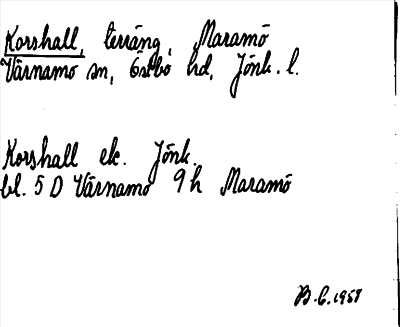 Korshall, terräng, Maramö
Värnamo sn, Östbo hd, Jönk. l.
Korshall ek. Jönk.
bl. 5 D Värnamo 9 h Maramö
B.C. 1958